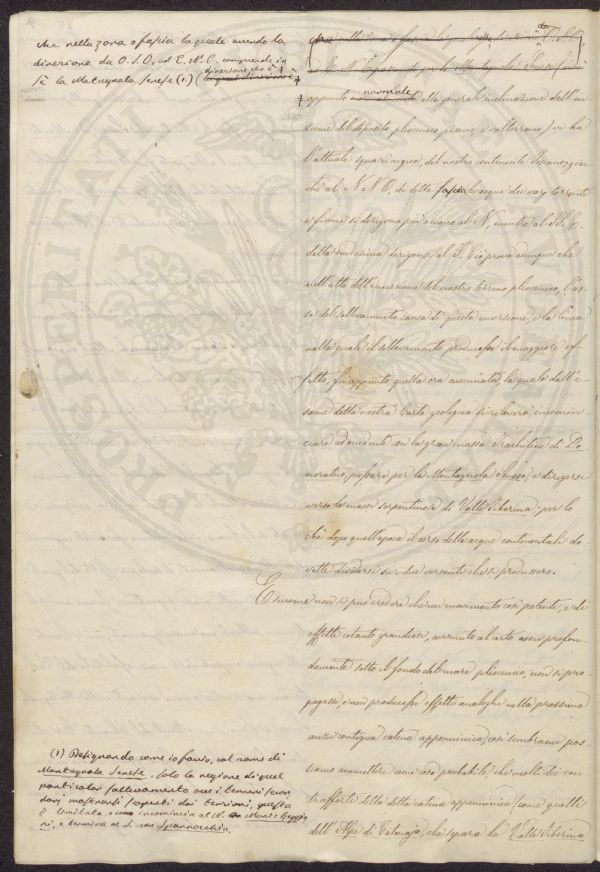 che nella zona o fascia la quale avendo la
direzione da O.S.O. ad E.N.E. comprende in
sè la Montagnola Senese (1) (
direzione che è
appunto normale alla generale inclinazione dell'in-
sieme del deposito pliocenico pisano, e volterrano) si ha
l'attuale spartiacque, del nostro continente Toscano, giac-
chè al N.N.O. di detta fascia le acque dei varj torrenti
e fiumi si dirigono più o meno al N, mentre al S.S.E.
della medesima dirigonsi al S. Ciò prova adunque che
nell'atto dell'emersione del nostro terreno pliocenico, l'as-
se del sollevamento causa di questa emersione, e la linea
nella quale il sollevamento producesse il maggiore ef-
fetto, fu appunto quella ora accennata, la quale dall'e-
same della nostra Carta geologica si rileverà incomin-
ciare ad occidente con la gran massa Trachitica di Do-
noratico, passare per la Montagnola Senese, e dirigersi
verso le masse serpentinose di Valle Tiberina; per lo
chè dopo quell'epoca il corso delle acque continentali do-
vette dividersi su i due versanti che si produssero.
E siccome non si può credere che un movimento così potente, e di
effetti cotanto grandiosi, avvenuto al certo assai profon-
damente sotto il fondo del mare pliocenico, non si pro-
pagasse, e non producesse effetti analoghi nella prossima
anzi contigua catena appenninica, così sembrami pos-
siamo ammettere come cosa probabile, che molti dei con-
trafforti della detta catena appenninica (come quelli
dell'Alpe di Catenaja, che separa la Valle Tiberina
(1) Designando come io faccio, col nome di
Montagnola Senese, solo la regione di quel
particolar sollevamento ove i terreni secon-
darj mostransi scoperti dai terziarj, questa
è limitata, e incomincia al N. con Monte Maggio
ni, e termina al S. con Spannocchia.